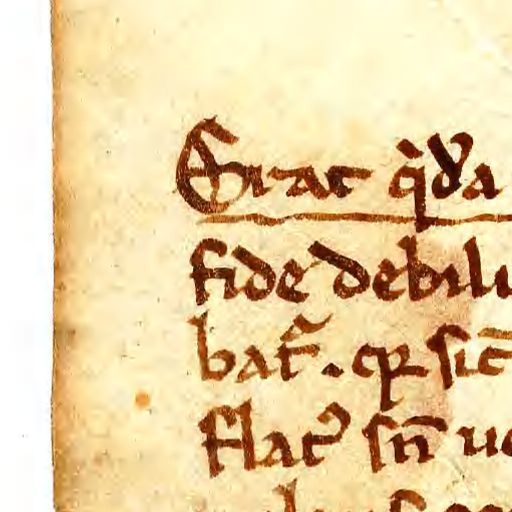 Erat q̇da
fide debili
bat᷑. qꝛ sic̄
flat᷒ sn̄ ue